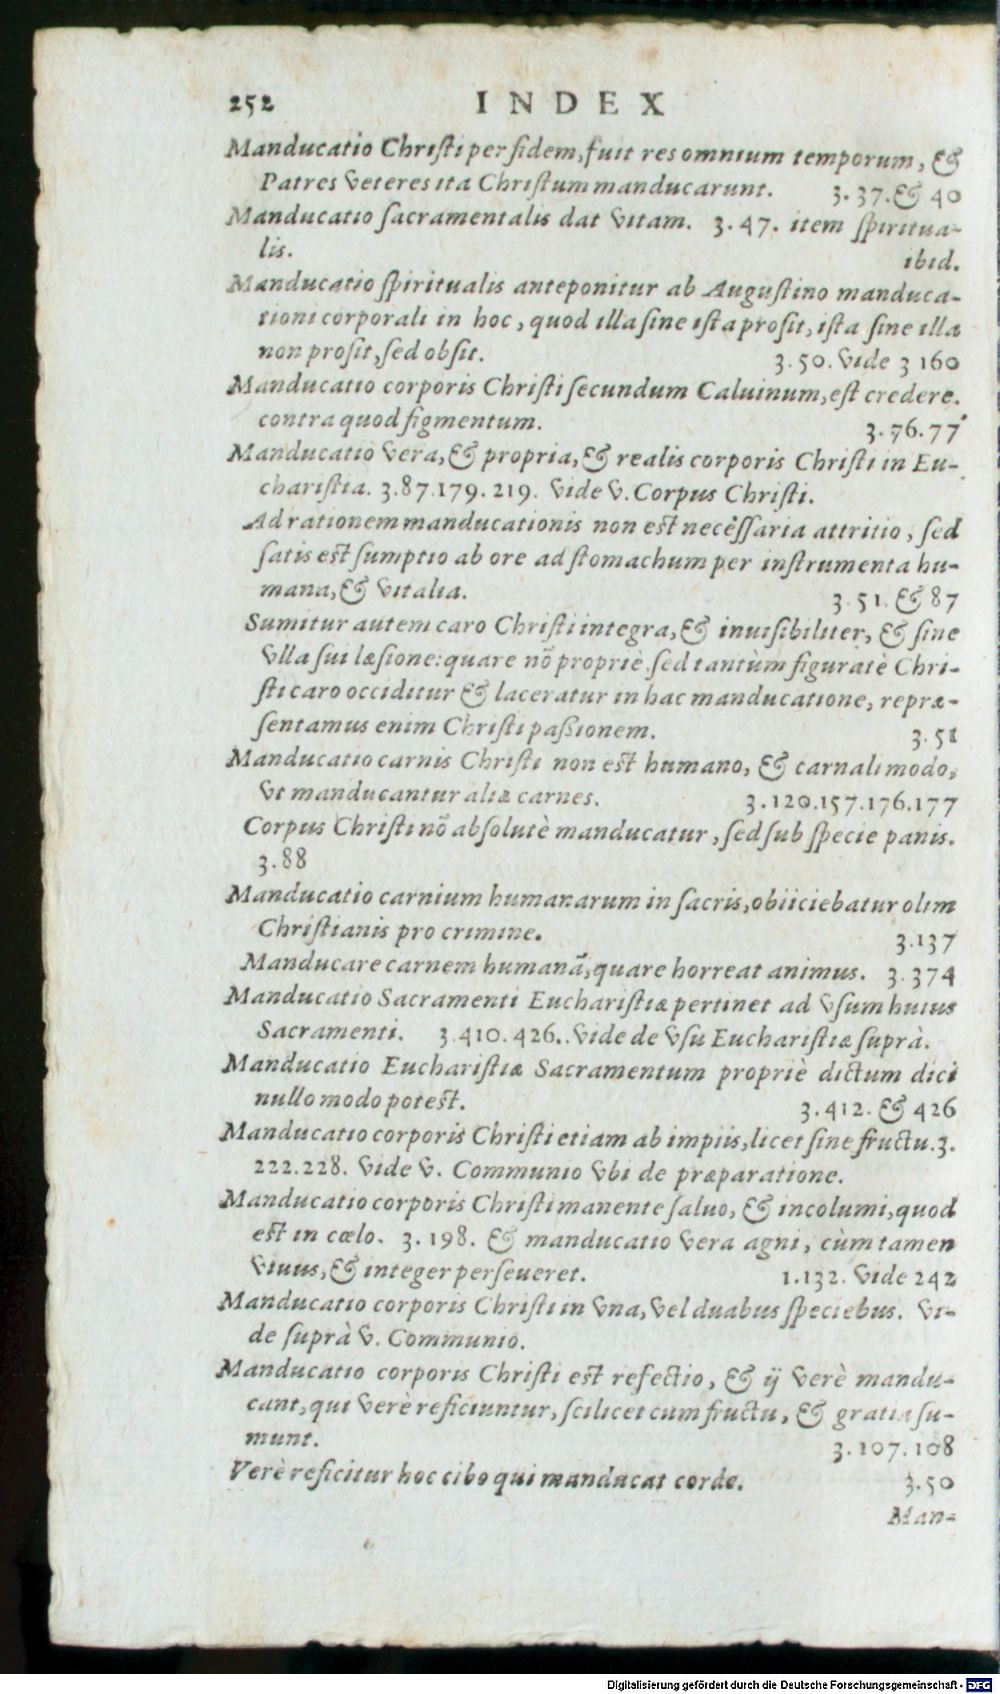 252 INDEX
Manducatio Christi per fidem, fuit res omnium temporum, &
Patres veteres ita Christum manducarunt. 3. 37. & 40
Manducatio sacramentalis dat vitam. 3. 47. item spiritua-
lis. ibid.
Manducatio spiritualis anteponitur ab Augustino manduca-
tioni corporali in hoc, quod illa sine ista prosit, ista sine illa
non prosit, sed obsit. 3. 50. vide 3 160
Manducatio corporis Christi secundum Caluinum, est credere.
contra quod figmentum. 3. 76. 77
Manducatio vera, & propria, & realis corporis Christi in Eu-
charistia. 3. 87. 179. 219. vide v. Corpus Christi.
Ad rationem manducationis non est necèssaria attritio, sed
satis est sumptio ab ore ad stomachum per instrumenta hu-
mana, & vitalia. 3. 51. & 87
Sumitur autem caro Christi integra, & inuisibiliter, & sine
vlla sui læsione: quare nō propriè, sed tantùm figuratè Chri-
sti caro occiditur & laceratur in hac manducatione, repræ-
sentamus enim Christi passionem. 3. 51
Manducatio carnis Christi non est humano, & carnali modo,
vt manducantur aliæ carnes. 3. 120. 157. 176. 177
Corpus Christi nō absolutè manducatur, sed sub specie panis.
3. 88
Manducatio carnium humanarum in sacris, obiiciebatur olim
Christianis pro crimine. 3. 137
Manducare carnem humanā, quare horreat animus. 3. 374
Manducatio Sacramenti Eucharistiæ pertinet ad vsum huius
Sacramenti. 3. 410. 426.. vide de vsu Eucharistiæ suprà.
Manducatio Eucharistiæ Sacramentum propriè dictum dici
nullo modo potest. 3. 412. & 426
Manducatio corporis Christi etiam ab impiis, licet sine fructu. 3.
222. 228. vide v. Communio vbi de præparatione.
Manducatio corporis Christi manente saluo, & incolumi, quod
est in cœlo. 3. 198. & manducatio vera agni, cùm tamen
viuus, & integer perseueret. 1. 132. vide 242
Manducatio corporis Christi in vna, vel duabus speciebus. vi-
de suprà v. Communio.
Manducatio corporis Christi est refectio, & ij verè mandu-
cant, qui verè reficiuntur, scilicet cum fructu, & gratia su-
munt. 3. 107. 108
Verè reficitur hoc cibo qui manducat corde. 3. 50
Man-
Digitalisierung gefördert durch die Deutsche Forschungsgemeinschaft - DFG